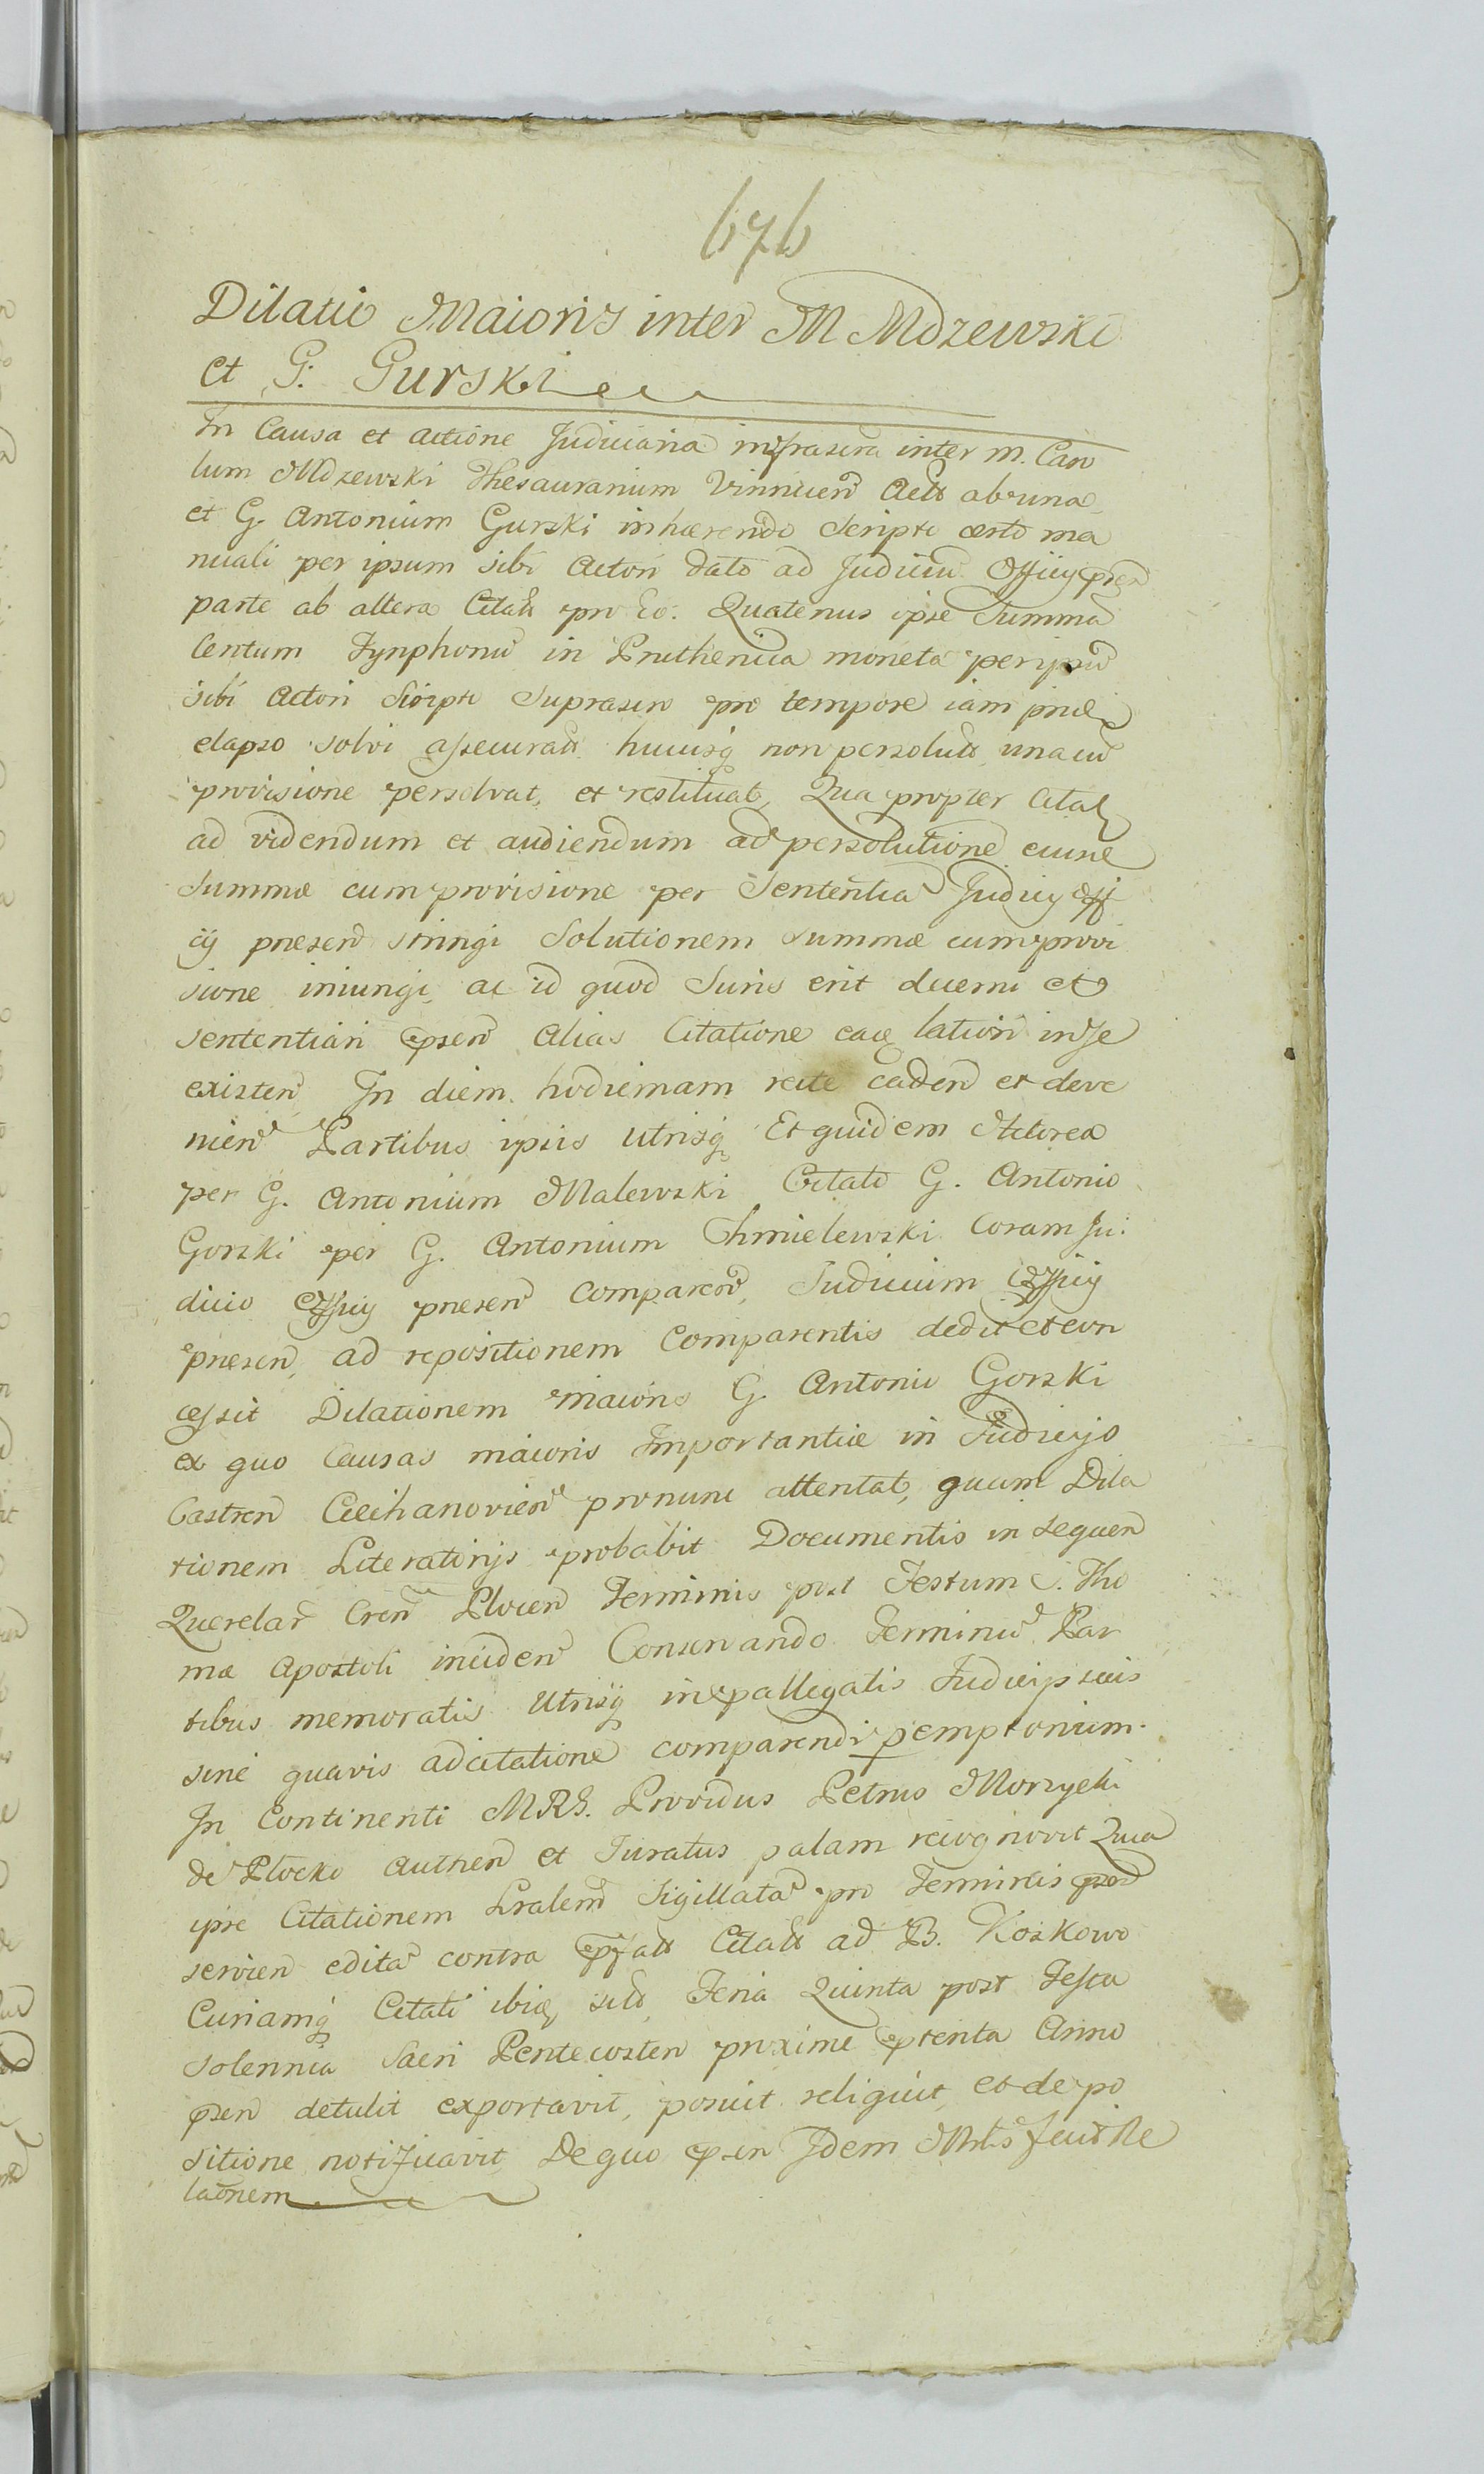 676
Dilatio Maioris inter M Mdzewski
et G: Gurski
In Causa et actione Judiciaria infrascra inter M. Caro
lum Mdzewski Thesaurarium Vinnicen Actt ab una
et G. Antonium Gurski inhærendo Scripto certo ma
nuali per ipsum sibi Actori dato ad Judiciu Officÿ præn
parte ab altera Citatt pro Eo. Quatenus ipse Summa
Centum Tynphonu in Pruthenica moneta per ipsu
sibi Actori Scripto Suprascro pro tempore iam præ
elapso solvi assecuratt hucusq non persolutt una cu
provisione persolvat, et restituat, Qua propter Citat
ad videndum et audiendum ad persolutione eiusde
Summæ cum provisione per Sententia Judicÿ Offi
cÿ præsen stringi Solutionem Summæ cum provi
sione iniungi, ac id quod Juris erit decerni et
sententiari præsen Alias Citatione eaq latiori in se
existen, In diem hodiernam recte caden et deve
nien Partibus ipsis utrisq Et quidem Actorea
per G. Antonium Malewski Citato G. Antonio
Gorski per G. Antonium Chmielewski Coram Ju:
dicio Officÿ præsen comparen, Judicium Officÿ
præsen, ad repositionem Comparentis dedit et con
cessit Dilationem maioris G. Antonio Gorski
ex quo Causas maioris Importantiæ in Judicÿo
Castren Ciechanovien pronunc attentat, quam Dila
tionem Literatorÿs probabit Documentis in sequen
Querelar Cren Plocen Terminis post Festum S. Tho
mæ Apostoli inciden Conservando Terminu Par
tibus memoratis Utrisq in præallegatis Judicÿs suis
sine quavis adcitatione comparendi pemptorium.
In Continenti MRG. Providus Petrus Morzycki
de Plocko Authen et Juratus palam recognovit Quia
ipse Citationem Lralem Sigillata pro Terminis præn
servien edita contra præfatt Citatt ad B. Koskowo
Curiamq Citati ibiq sitt Feria Quinta post Festa
Solennia Sacri Pentecosten proxime præterita Anno
præsen detulit exportavit, posuit reliquit, et de po
sitione notificavit, De quo præsen Idem Mtlis fecit Re
laonem